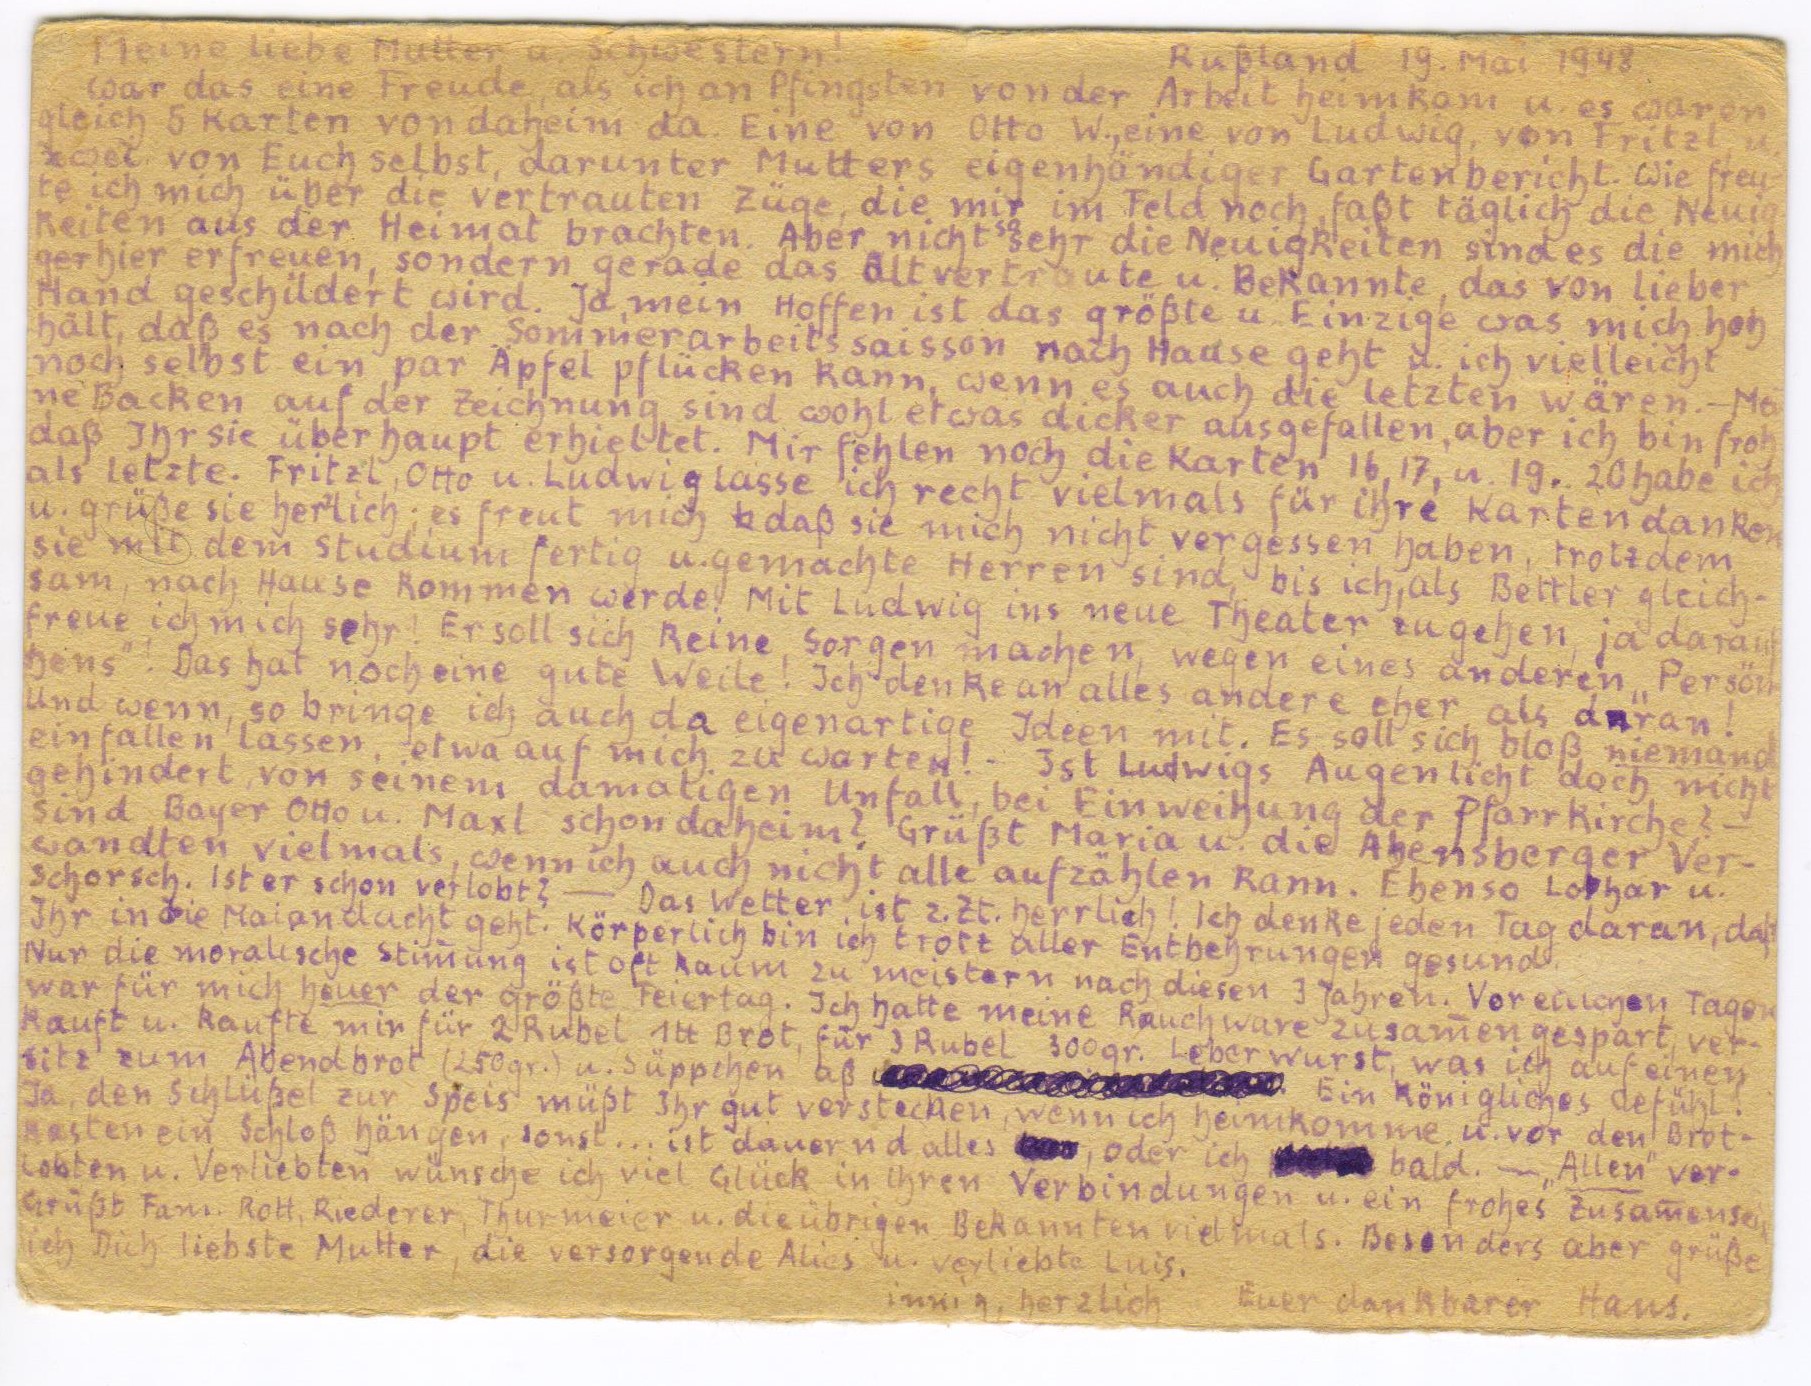 Meine liebe Mutter u. Schwestern! Rußland 19. Mai 1948.
War das eine Freude, als ich an Pfingsten von der Arbeit heimkam u. es waren
gleich 5 Karten von daheim da. Eine von Otto W., eine von Ludwig, von Fritzl, u.
zwei von Euch selbst, darunter Mutters eigenhändiger Gartenbericht. Wie freu-
te ich mich über die vertrauten Züge, die mir im Feld noch, faßt täglich die Neuig
keiten aus der Heimat brachten. Aber nicht so sehr die Neuigkeiten sind es die mich
hier erfreuen, sondern gerade das Altvertraute u. Bekannte, das von lieber
Hand geschildert wird. Ja, mein Hoffen ist das größte u. Einzige was mich hoch
hält, daß es nach der Sommerarbeitssaisson nach Hause geht u. ich vielleicht
noch selbst ein par Äpfel pflücken kann, wenn es auch die letzten wären. – Mei
ne Backen auf der Zeichnung sind wohl etwas dicker ausgefallen, aber ich bin froh
daß Ihr sie überhaupt erhieltet. Mir fehlen noch die Karten 16, 17, u. 19. 20 habe ich
als letzte. Fritzl, Otto u. Ludwig lasse ich recht vielmals für ihre Karten danken
u. grüße sie herzlich; es freut mich daß sie mich nicht vergessen haben, trotzdem
sie mit dem Studium fertig u. gemachte Herren sind, bis ich, als Bettler gleich-
sam, nach Hause kommen werde! Mit Ludwig ins neue Theater zu gehen, ja darauf
freue ich mich sehr! Er soll sich keine Sorgen machen, wegen eines anderen „Persön
hens"! Das hat noch eine gute Weile! Ich denke an alles andere eher als daran!
Und wenn, so bringe ich auch da eigenartige Ideen mit. Es soll sich bloß niemand
einfallen lassen, etwa auf mich zu warten! - Ist Ludwigs Augenlicht doch nicht
gehindert, von seinem damaligen Unfall, bei Einweihung der Pfarrkirche? –
Sind Bayer Otto u. Maxl schon daheim? Grüßt Maria u. die Abensberger Ver-
wandten vielmals, wenn ich auch nicht alle aufzählen kann. Ebenso Lothar u.
Schorsch. Ist er schon verlobt? — Das Wetter ist z. Zt. herrlich! Ich denke jeden Tag daran, daß
Ihr in die Maiandacht geht. Körperlich bin ich trotz aller Entbehrungen gesund.
Nur die moralische Stim̄ung ist oft kaum zu meistern nach diesen 3 Jahren. Vor etlichen Tagen
war für mich heuer der größte Feiertag. Ich hatte meine Rauchware zusam̄engespart, ver-
kauft u. kaufte mir für 2 Rubel 1 tt Brot, für 3 Rubel 300gr. Leberwurst, was ich auf einen
sitz zum Abendbrot (250gr.) u. Süppchen aß. Ein Königliches Gefühl!
Ja, den Schlüßel zur Speis müßt Ihr gut verstecken, wenn ich heimkomme, u. vor den Brot-
kasten ein Schloß hängen, sonst... ist dauernd alles , oder ich bald. — „Allen" ver-
lobten u. Verliebten wünsche ich viel Glück in ihren Verbindungen u. ein frohes Zusam̄ensein
Grüßt Fam. Rott, Riederer, Thurmeier u. die übrigen Bekannten vielmals. Besonders aber grüße
ich Dich liebste Mutter, die versorgende Alies u. verliebte Luis,
innig, herzlich Euer dankbarer Hans.